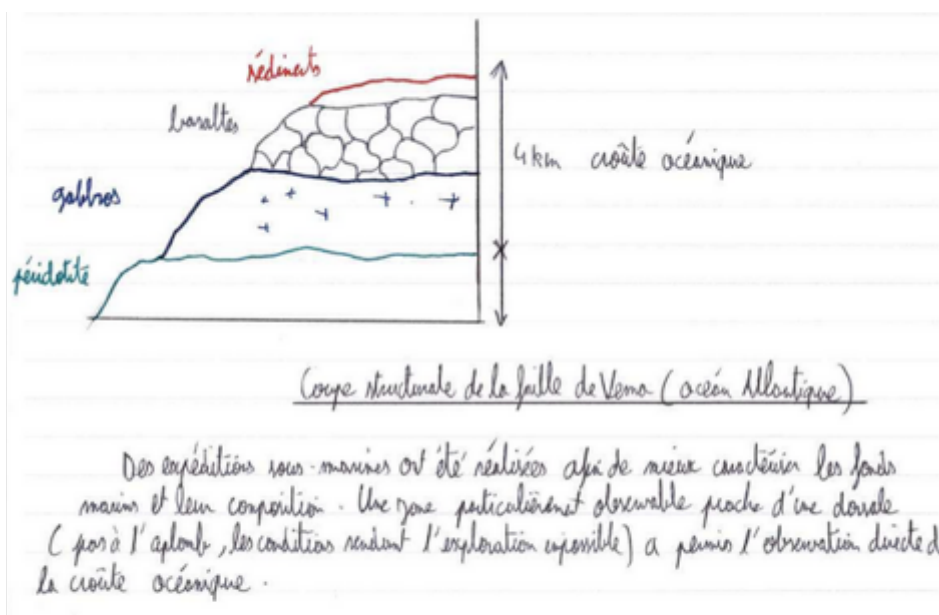 sédiments
basaltes
4km croûte océanique
gabbros
péridotite
Coupe structurale de la faille de Vema (océan Atlantique)
Des expéditions sous-marines ont été réalisées afin de mieux caractériser les fonds
marins et leur composition. Une zone particulièrement observable proche d'une dorsale
(pas à l'aplomb, les conditions rendant l'exploration impossible) a permis l'observation directe d
la croûte océanique.